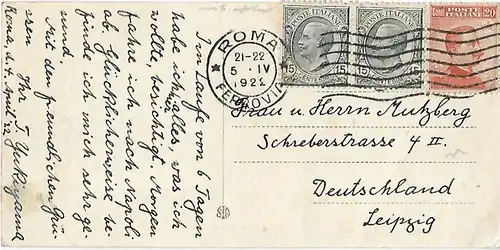 Im Laufe von 6 Tagen
habe ich hier alles, was ich
wollte, besichtigt. Morgen
fahre ich nach Napoli
ab. Glücklicherweise be-
finde ich mich sehr ge-
sund.
Mit den freundlichen Grü-
ssen
Ihr, T. Yukiyama
Roma, d. 4. April '22
ROMA
21-22
5 · IV
1922
FERROVIA
POSTE ITALIANE
15
POSTE ITALIANE
15
POSTE ITALIANE
20
Frau u. Herrn Mutzberg
Schreberstrasse 4 II.
Deutschland
Leipzig